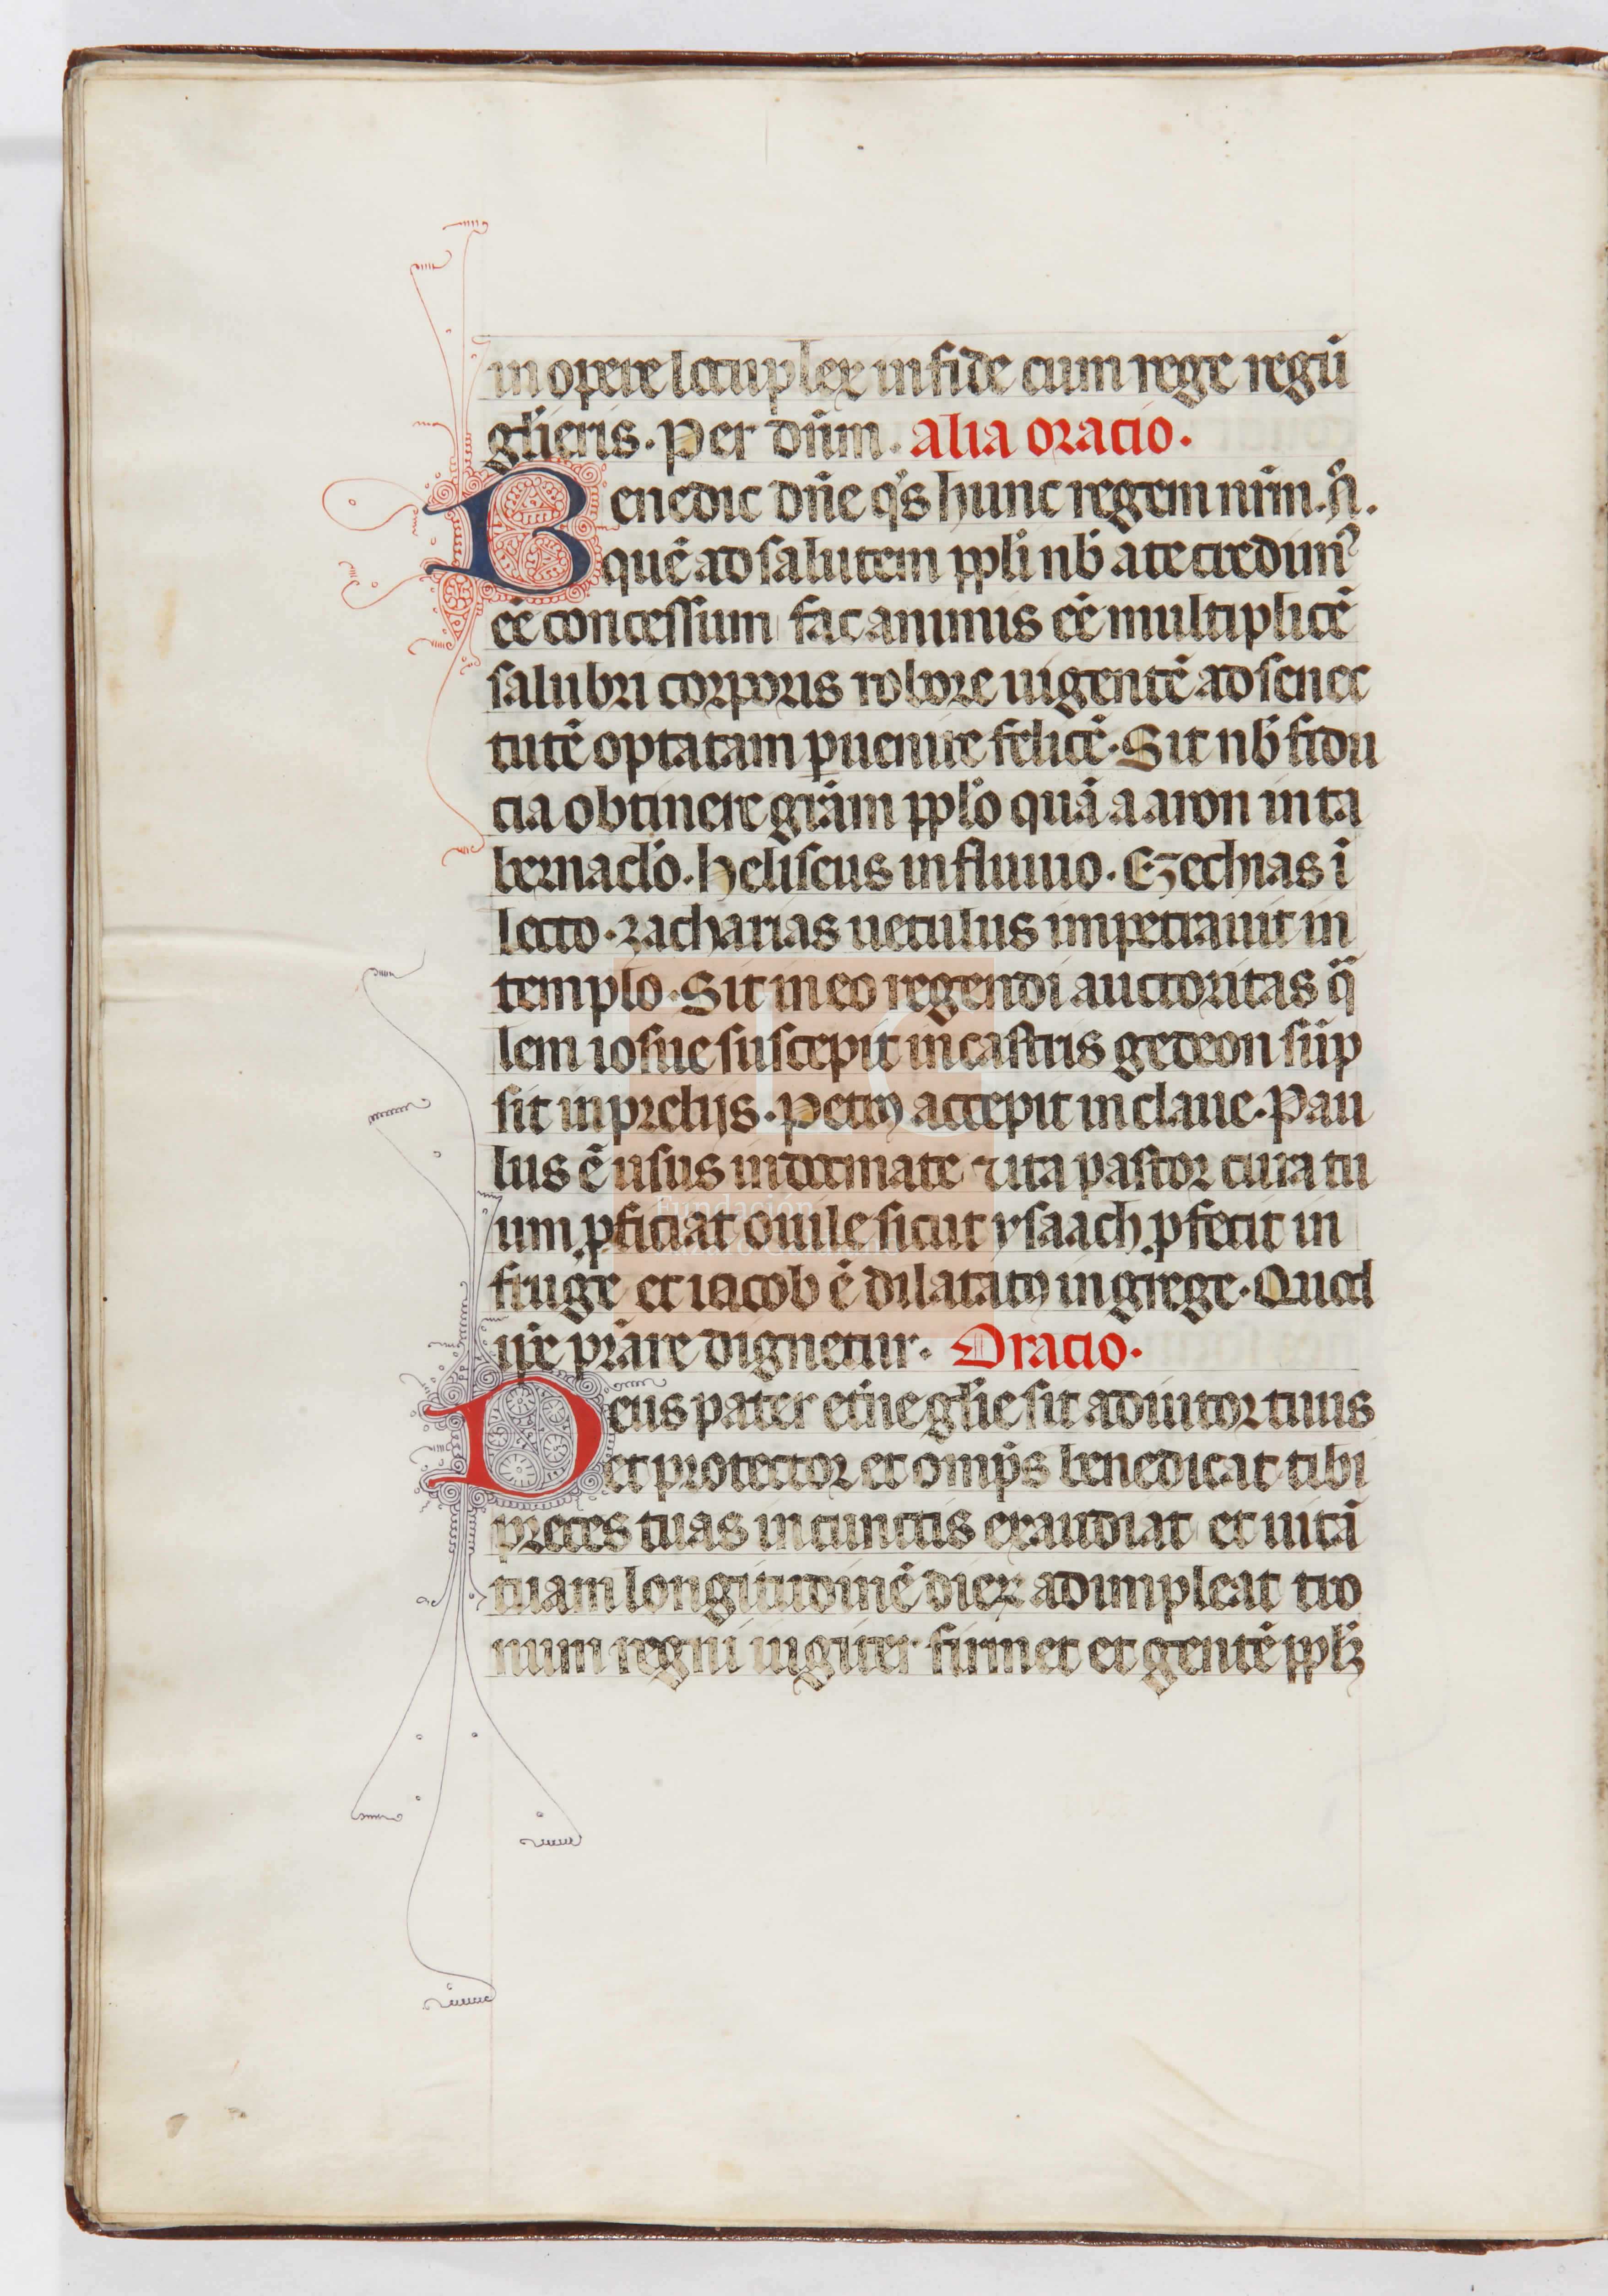 in opere locuplex in fide cum rege regū
gl̄ieris. Per dn̄m. alia oracio.
Benedic dn̄e qͥs hunc regem nr̄m. N̄.
quē ad salutem pp̄li nb̄ a te credimꝰ
eē concessum fac annis eē multiplicē
salubri corporis robore uigentē ad senec
tutē optatam ꝑuenire felicē. Sit nb̄ fidu
cia obtinere gr̄am pplo̅ quā aaron in ta
bernaclo̅. heliseus in fluuio. Ezechias ī
lecto. zacharias uetulus impetrauit in
templo. Sit in eo regendi auctoritas q̄
lem iosue suscepit in castris gedeon sūp
sit in prelijs. Petrꝰ accepit in claue. Pau
lus ē usus in docmate ⁊ ita pastor cura tu
um ꝓficiat ouile sicut ysaach ꝓfecit in
fruge et iacob ē dilatatꝰ in grege. Quod
ip̄e prāre dignetur. Oracio.
Deus pater et̄ne gl̄ie sit adiutor tuus
et protector et omp̄s benedicat tibi
preces tuas in cunctis exaudiat et uitā
tuam longitudinē dieꝝ adimpleat tro
num regni iugiter firmet et gentē pplꝫ
fundación